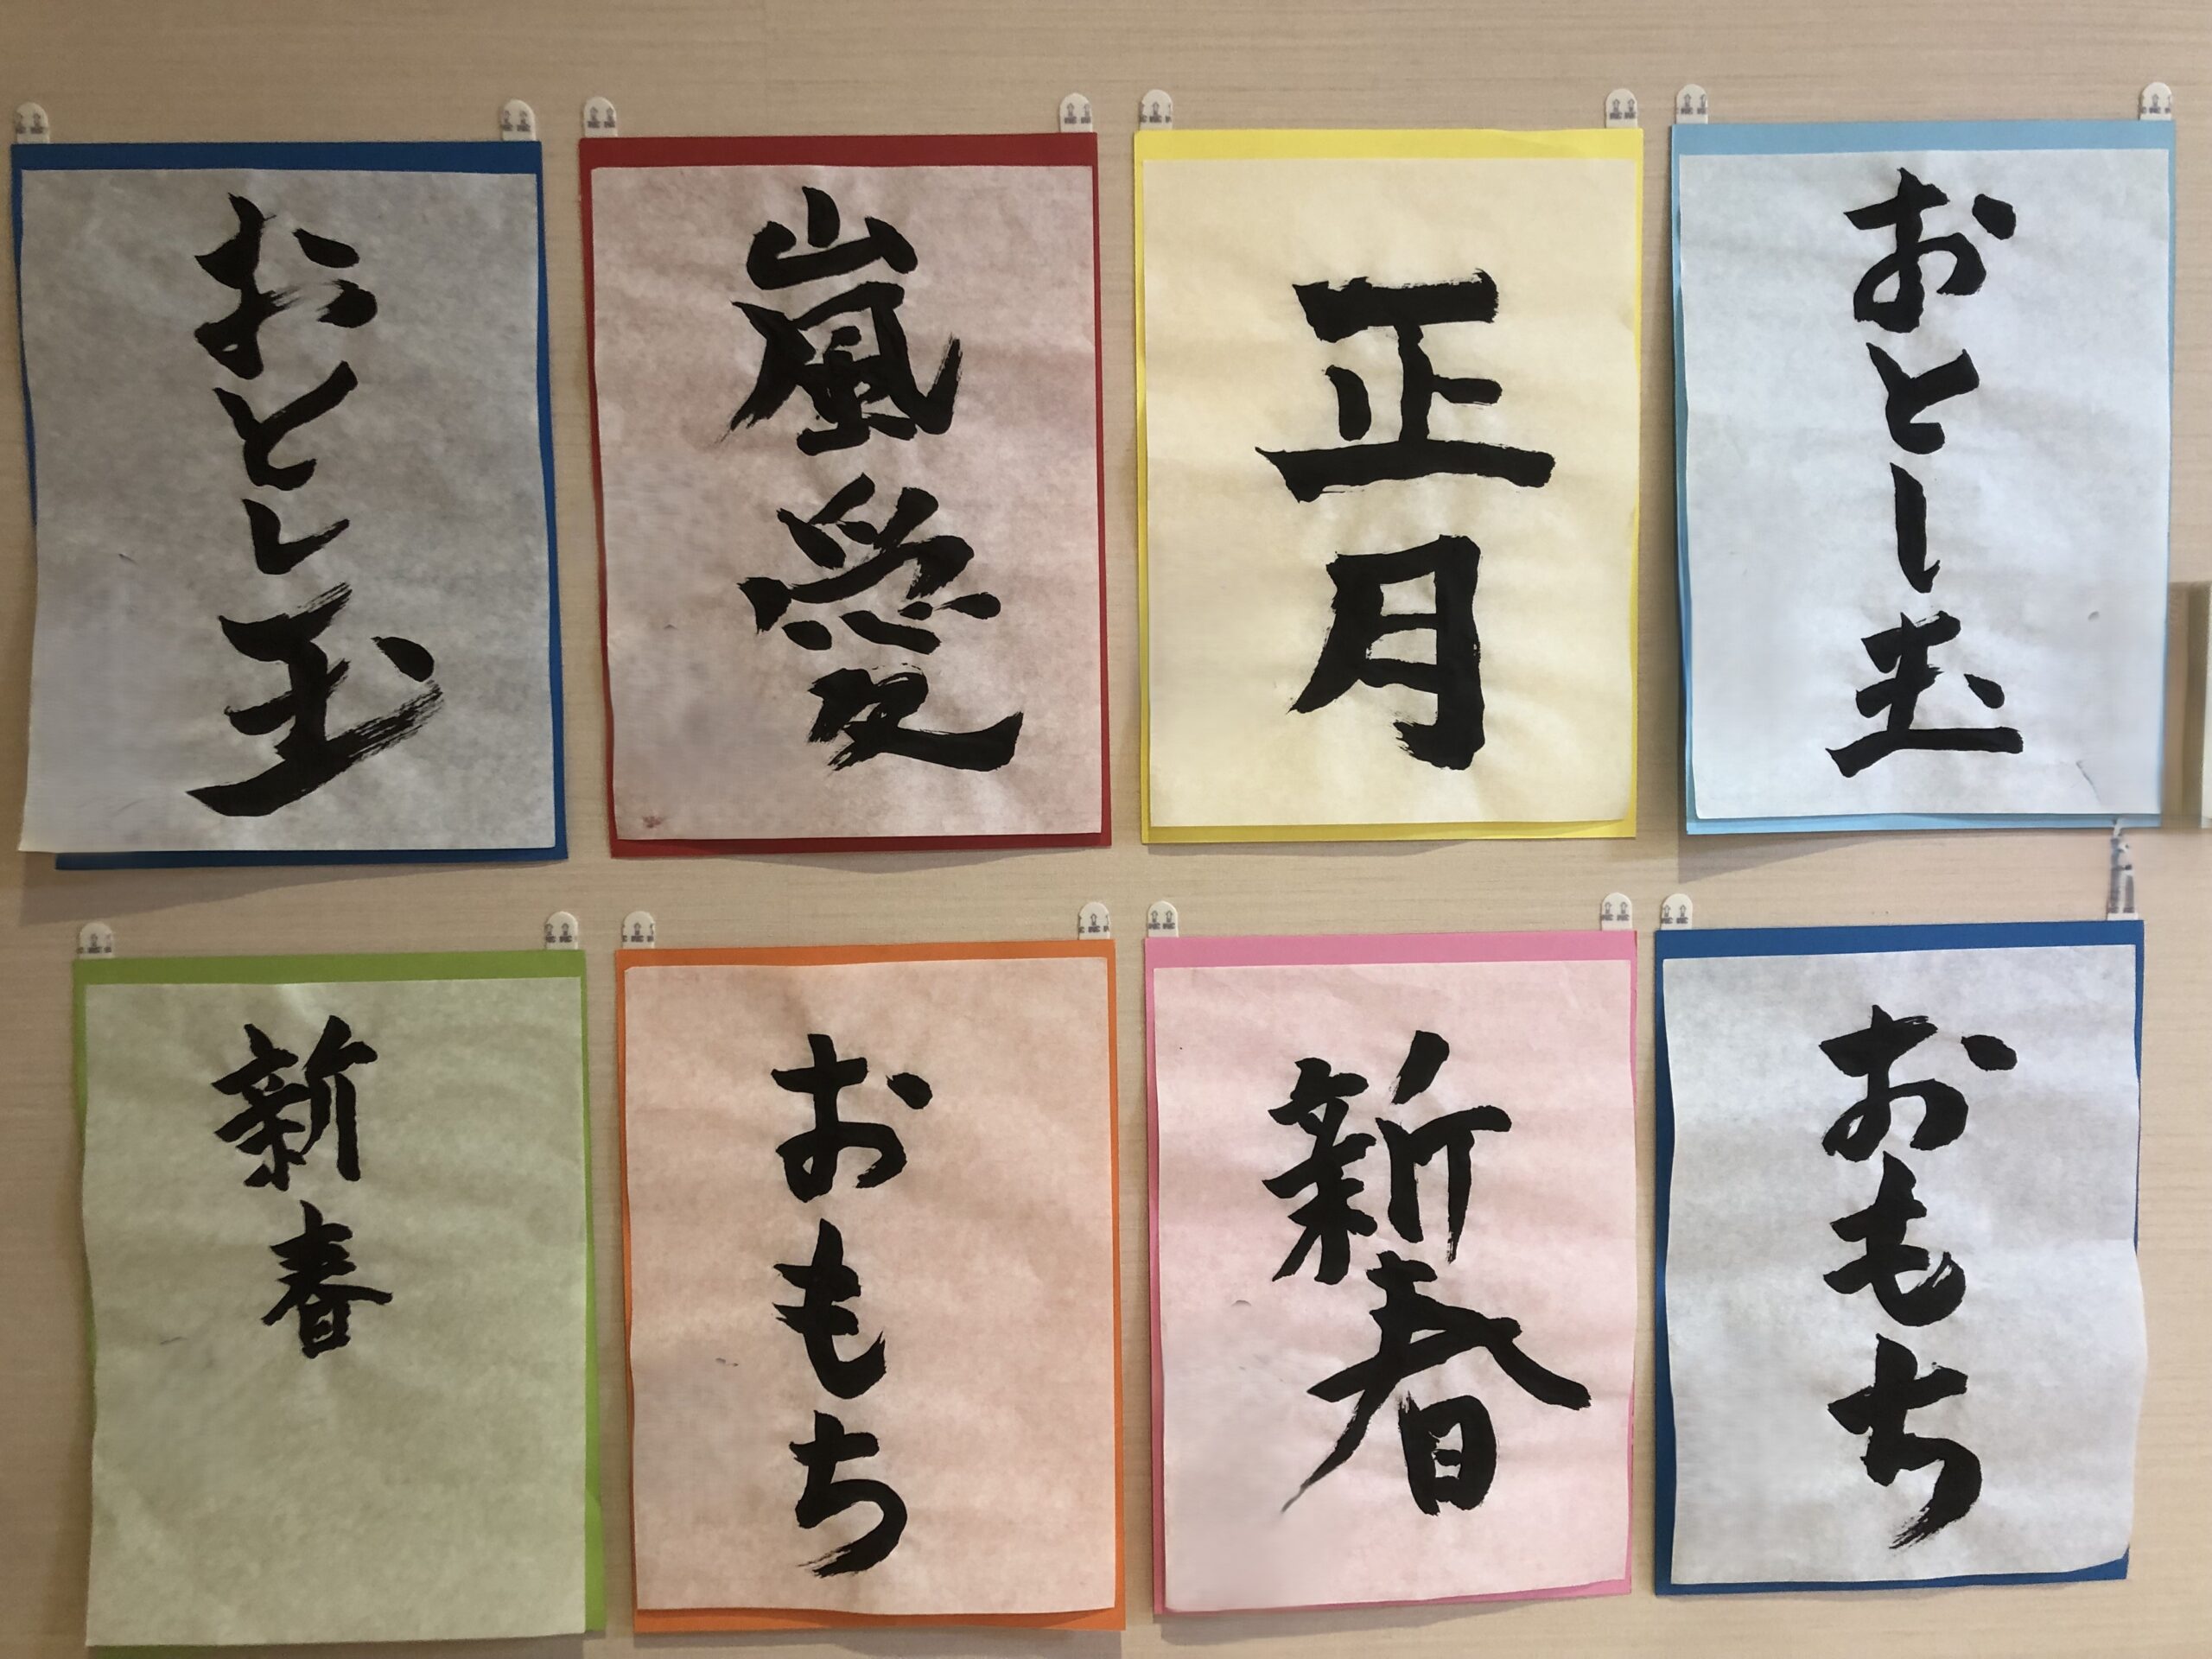 おとし玉
嵐愛
正月
おとし玉
新春
おもち
新春
おもち